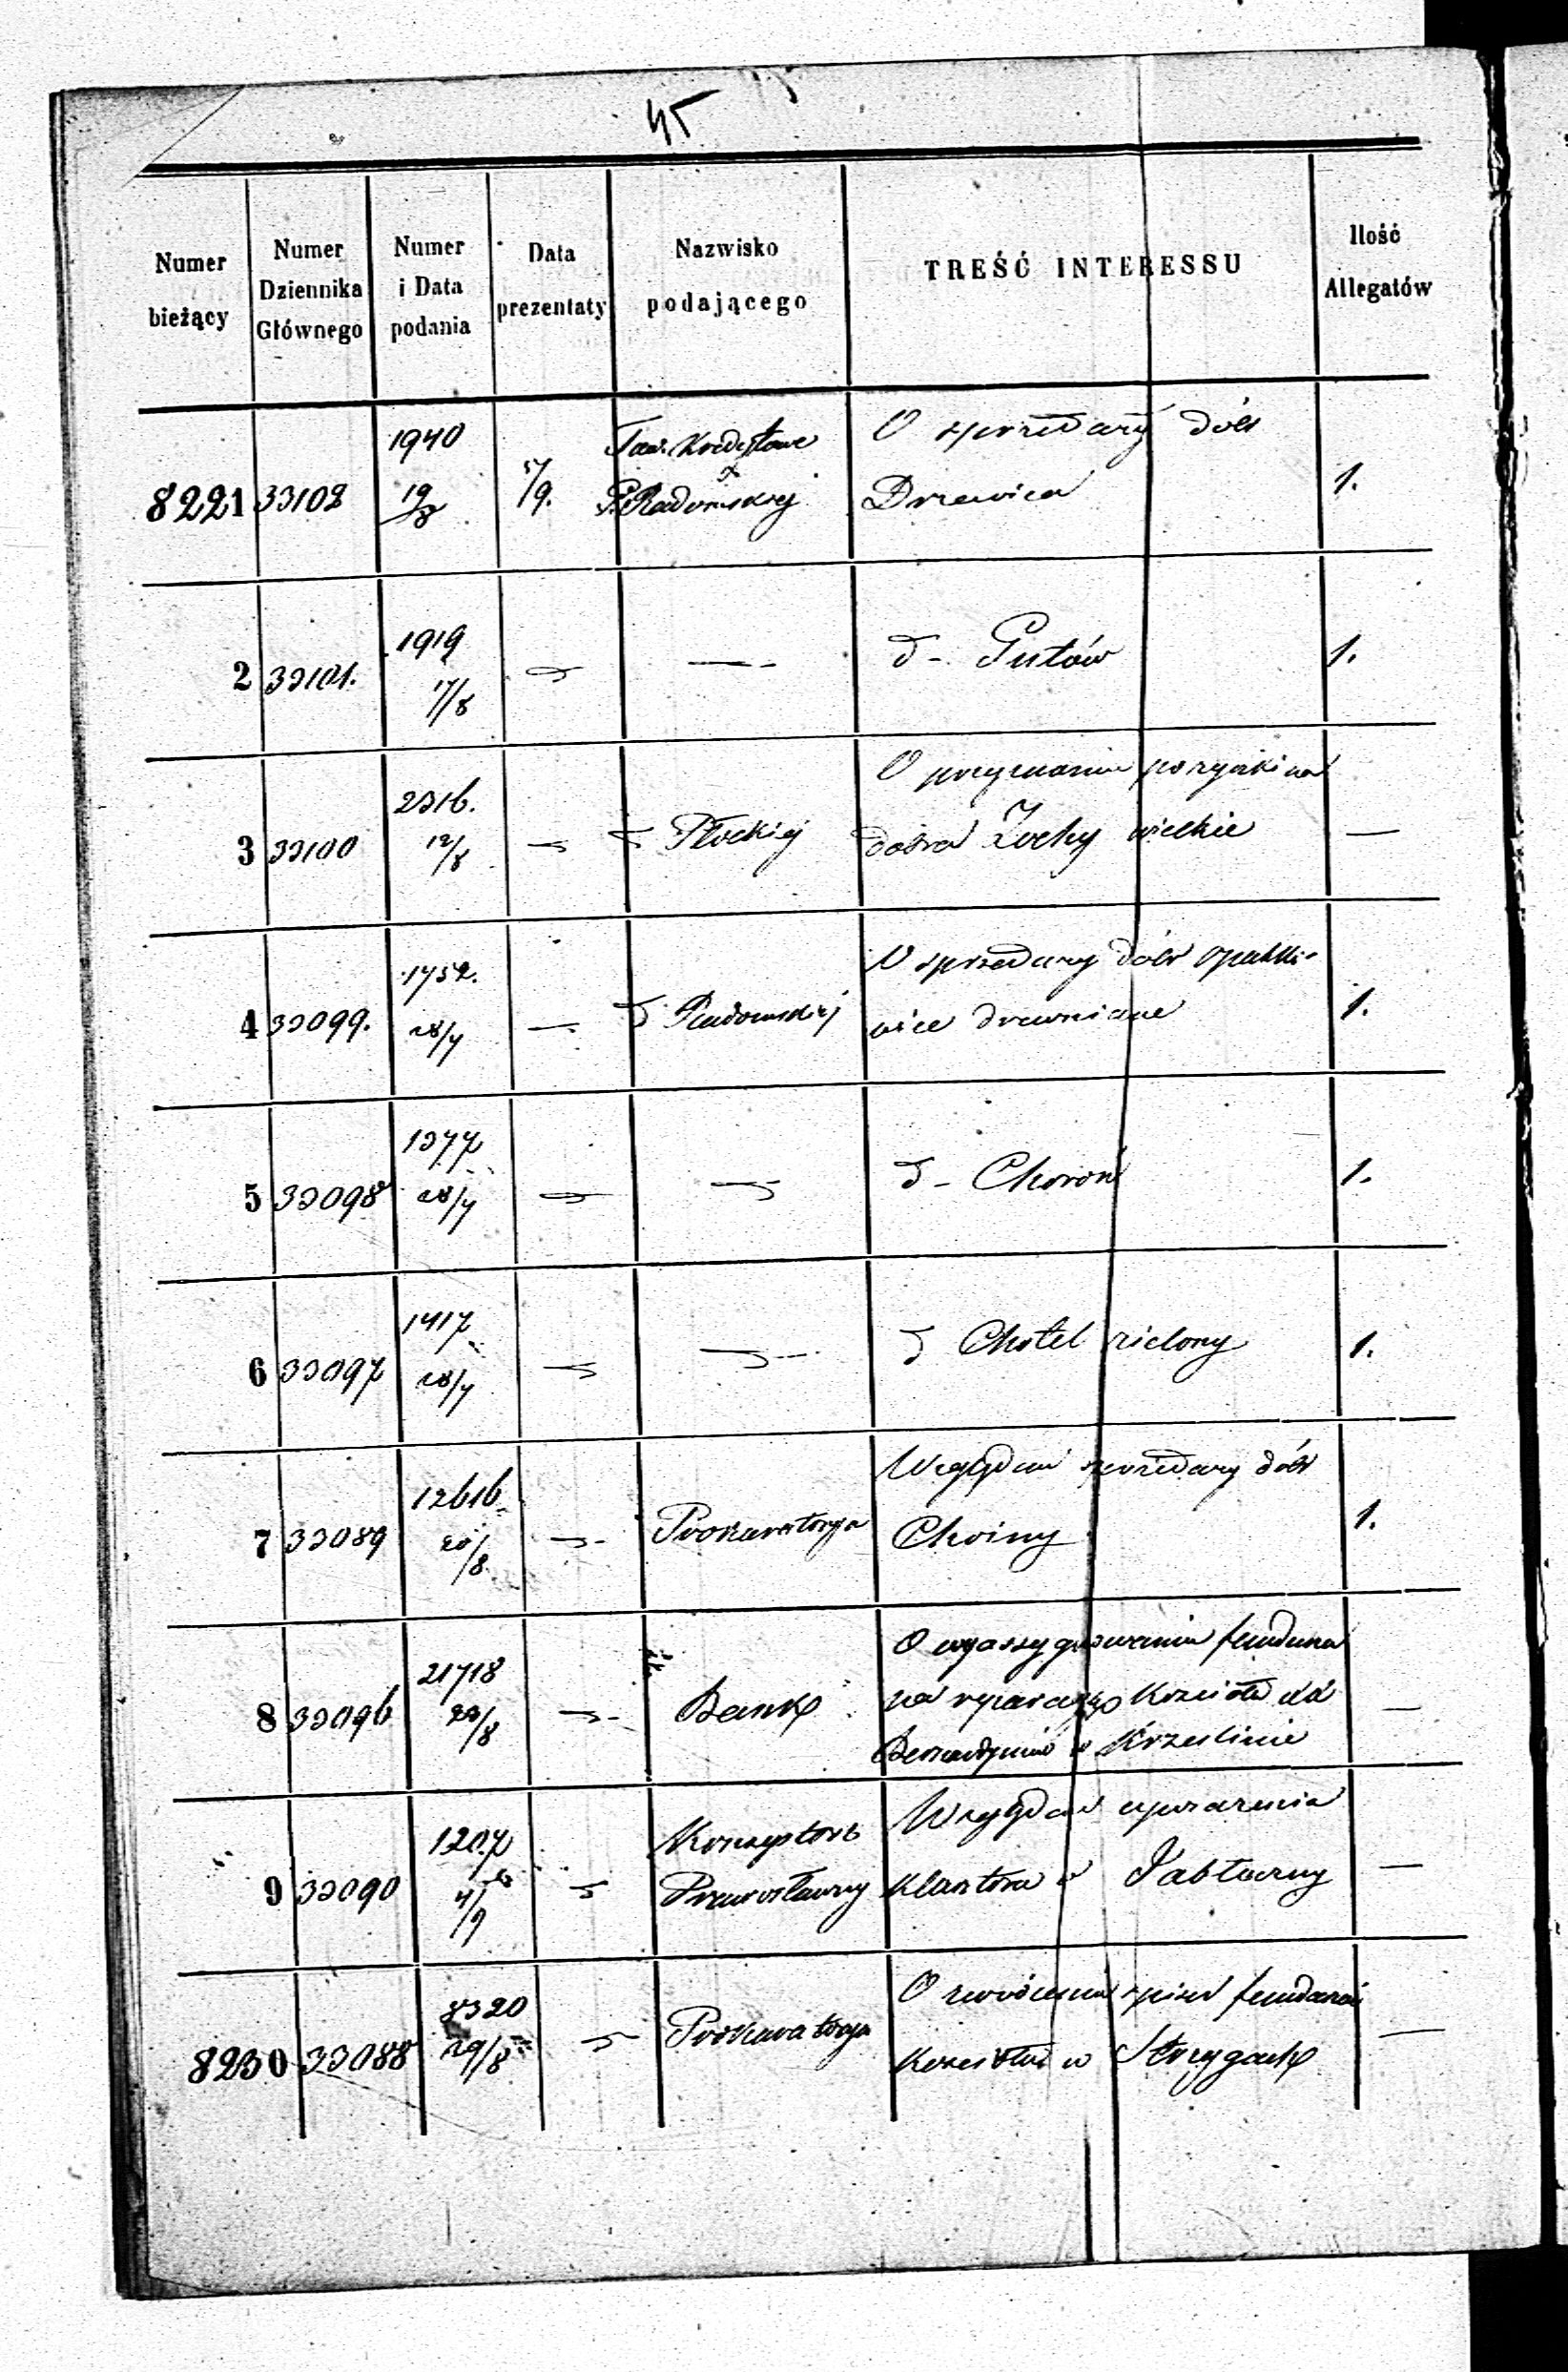 45
Numer bieżący | Numer Dziennika Głównego | Numer i Data podania | Data prezentaty | Nazwisko podającego | TREŚĆ INTERESSU | Ilość Allegatów
8221 | 33102 | 1940 19/8 | 5/9. | Tow. Kredytowe G. Radomskiej | O sprzedaży dóbr Drzewica | 1.
2 | 33101. | 1919 17/8 | — | — | d- Gutów | 1.
3 | 33100 | 2316. 12/8 | — | d Płockiej | O przyznanie pożyczki na dobra Żochy wielkie | —
4 | 33099. | 1752. 28/7 | — | d Radomskiej | O sprzedaży dóbr Opatkowice drewniane | 1.
5 | 33098 | 1377 28/7 | — | — | d- Choroń | 1.
6 | 33097 | 1417 28/7 | — | — | d Chotel zielony | 1.
7 | 33089 | 12616 20/8 | — | Prokuratorya | Względem sprzedaży dóbr Choiny | 1.
8 | 33096 | 21718 23/8 | — | Bank | O wyassygnowanie funduszu na reparacyę Kościoła XX Bernardynów w Krześlinie | —
9 | 33090 | 1207 4/9 | — | Konsystorz Prawosławny | Względem uposażenia Klasztoru w Jabłeczny | —
8230 | 33088 | 8320 29/8 | — | Prokuratorya | O zwrócenie spisu fundacyi Kościoła w Strzygach | —